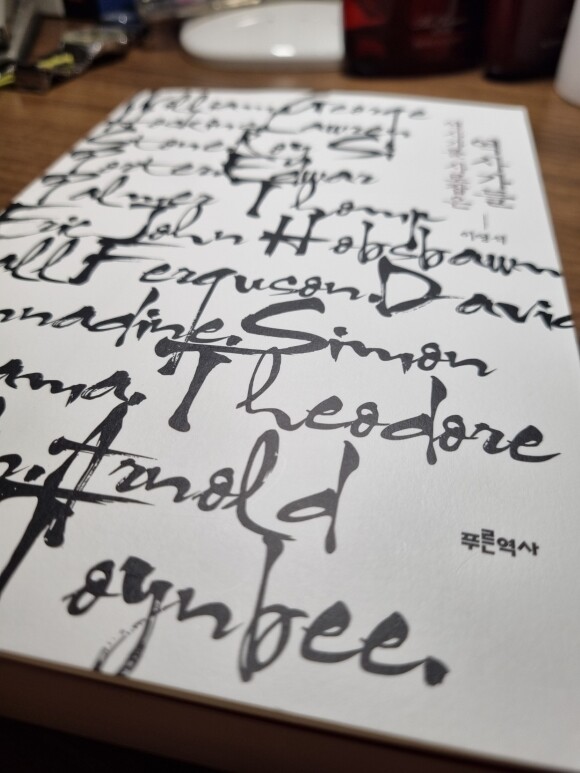 William George
Hoskins. Lawren
Stone. Roy S
Porter. Edwar
Palmer Thomp
Eric John Hobsbawm.
all Ferguson. David
nnadine. Simon
ama. Theodore
Arnold
Toynbee.
이영석
푸른역사